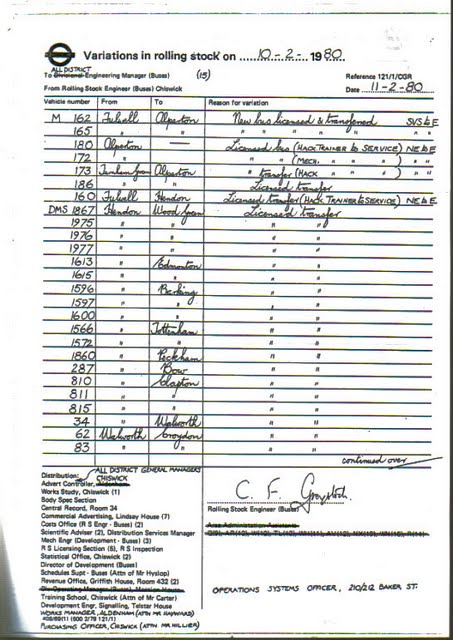 Variations in rolling stock on 10-2- 1980
ALL DISTRICT
To Divisional Engineering Manager (Buses) (15) Reference 121/1/CGR
From Rolling Stock Engineer (Buses) Chiswick Date 11-2-80
Vehicle number From To Reason for variation
M 162 Fulwell Alperton New bus licensed & transferred SVS to E
165 " " " " " " " "
180 Alperton — Licensed bus (HACK TRAINER to SERVICE) NE to E
172 " " (MECH. " ) " "
173 Turnham Green Alperton " transfer (HACK " ) " "
186 " " Licensed transfer
160 Fulwell Hendon Licensed transfer (HACK TRAINER to SERVICE) NE to E
DMS 1867 Hendon Wood Green Licensed transfer
1975 " " " "
1976 " " " "
1977 " " " "
1613 " Edmonton " "
1615 " " " "
1596 " Barking " "
1597 " " " "
1600 " " " "
1566 " Tottenham " "
1572 " " " "
1860 " Peckham " "
287 " Bow " "
810 " Clapton " "
811 " " " "
815 " " " "
34 " Walworth " "
62 Walworth Croydon " "
83 " " " "
continued over
Distribution: ALL DISTRICT GENERAL MANAGERS
CHISWICK
Advert Controller, Aldenham (1)
Works Study, Chiswick (1)
Body Spec Section
Central Record, Room 34
Commercial Advertising, Lindsey House (7)
Costs Office (R S Engr - Buses) (2)
Scientific Adviser (2), Distribution Services Manager
Mech Engr (Development - Buses) (3)
R S Licensing Section (8), R S Inspection
Statistical Office, Chiswick (2)
Director of Development (Buses)
Schedules Supt - Buses (Attn of Mr Hyslop)
Revenue Office, Griffith House, Room 432 (2)
Training School, Chiswick (Attn of Mr Carter)
Development Engr, Signalling, Telstar House
WORKS MANAGER, ALDENHAM (ATTN MR HAYWARD)
PURCHASING OFFICER, CHISWICK (ATTN MR HILLIER)
C. F.
Rolling Stock Engineer (Buses)
Area Administration Assistants
OPERATIONS SYSTEMS OFFICER, 210/212 BAKER ST.